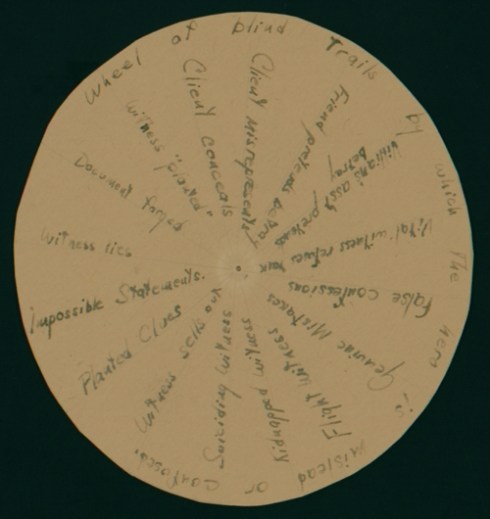 Wheel of blind Trails by which The Hero is mislead or Confused.
Client Misrepresents
Friend pretends betray
Villians asst pretends betray
Vital witness refuses talk
False confessions
Genuine Mistakes
Flight witness
Kidnapped witness
Suiciding witness
Witness sells out
Planted Clues
Impossible Statements.
Witness lies
Document forged
Witness "planted"
Client conceals